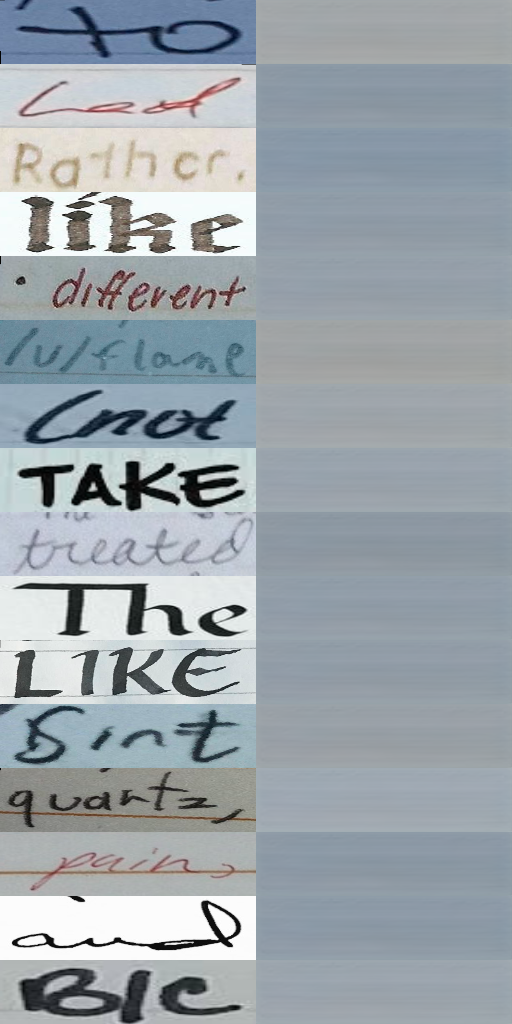 to
Lead
Rather.
like
• different
/u/flame
(not
TAKE
treated
The
LIKE
quartz,
pain,
and
B/C